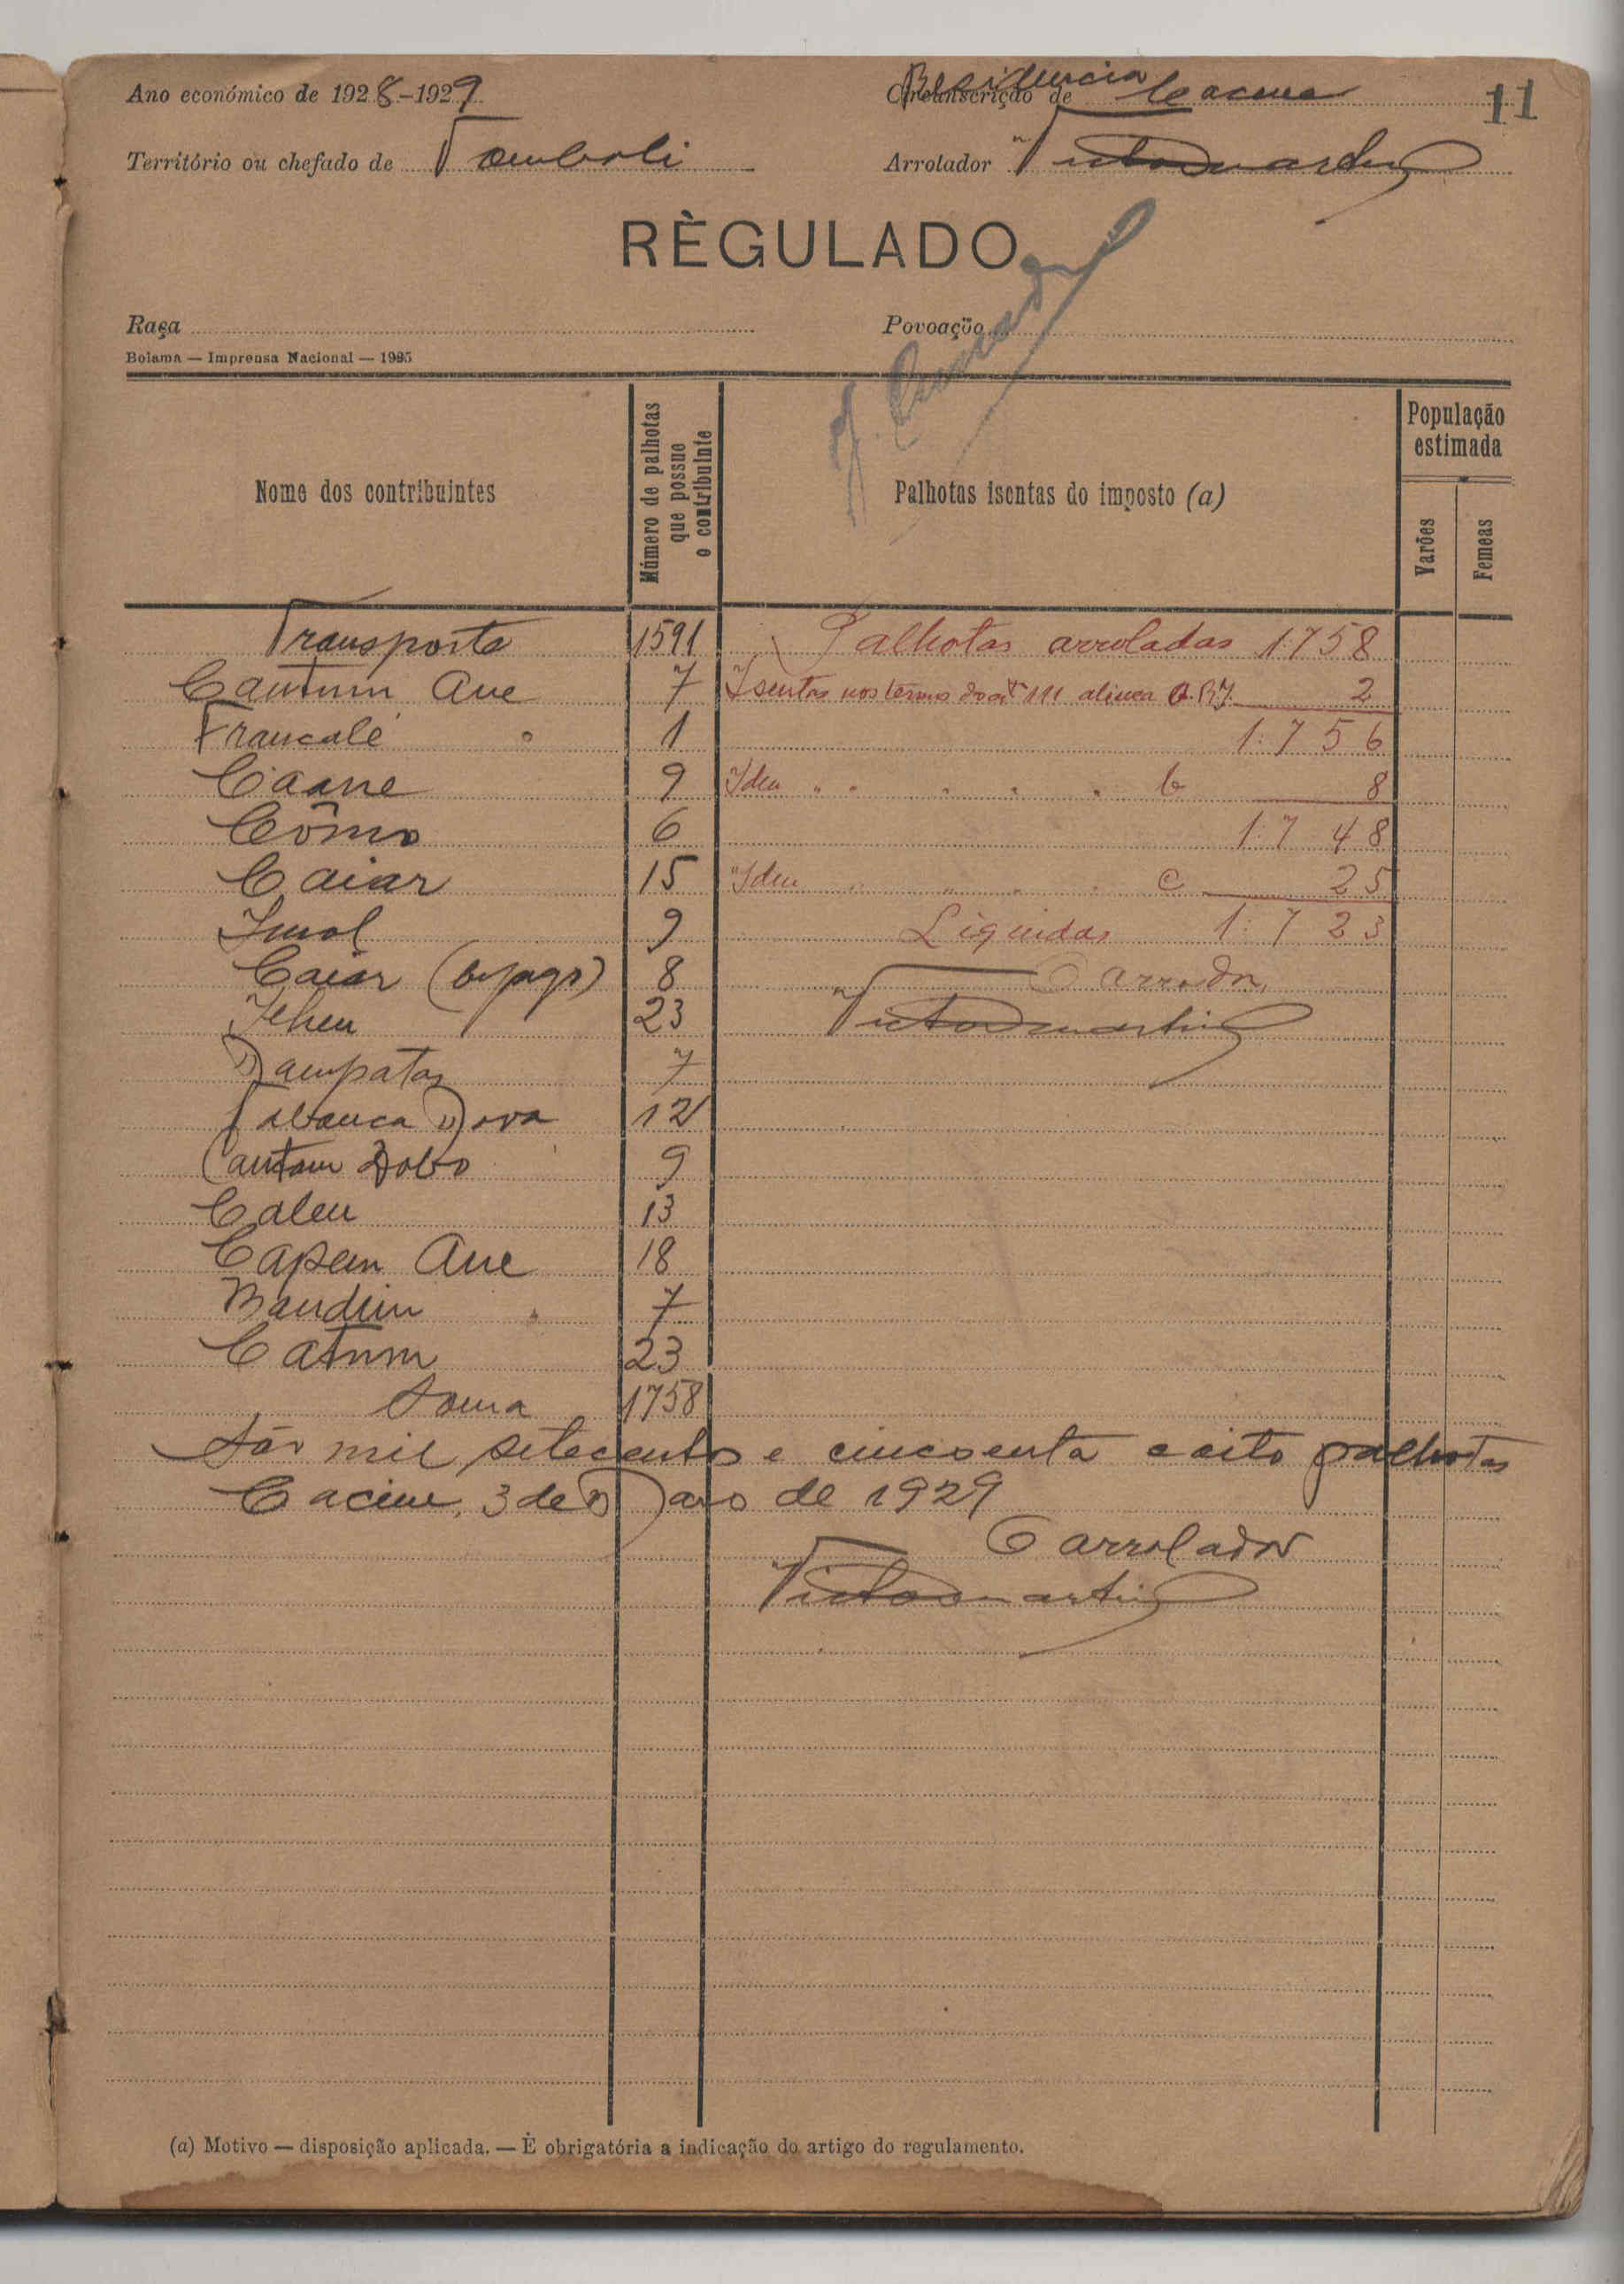 Ano económico de 1928-1929
Residencia Cacine
Circunscrição de
11
Território ou chefado de Tomboli
Arrolador Victor Martins
RÈGULADO
Raça
Povoação
Bolama — Imprensa Nacional — 1925
Nome dos contribuintes
Número de palhotas que possue o contribuinte
Palhotas isentas do imposto (a)
População estimada
Varões
Femeas
Transporte 1591 Palhotas arroladas 1.758
Cautum Ane 7 Isentas nos termos do artº 111 alinea a. 2
Francalé " 1 1:756
Caane 9 Idem " " " " " b 8
Cômo 6 1:748
Caiar 15 Idem " " " " c 25
9 Liquidas 1:723
Caiar (bijago) 8 O arrolador
23 Victor Martins
Nampatas 7
Tabanca Nova 12
Cautam Dobo 9
Calen 13
Ane 18
Bandim " 7
Catum 23
Soma 1758
São mil setecentos e cincoenta e oito palhotas
Cacine, 3 de de 1929
O arrolador
Victor Martins
(a) Motivo — disposição aplicada. — É obrigatória a indicação do artigo do regulamento.